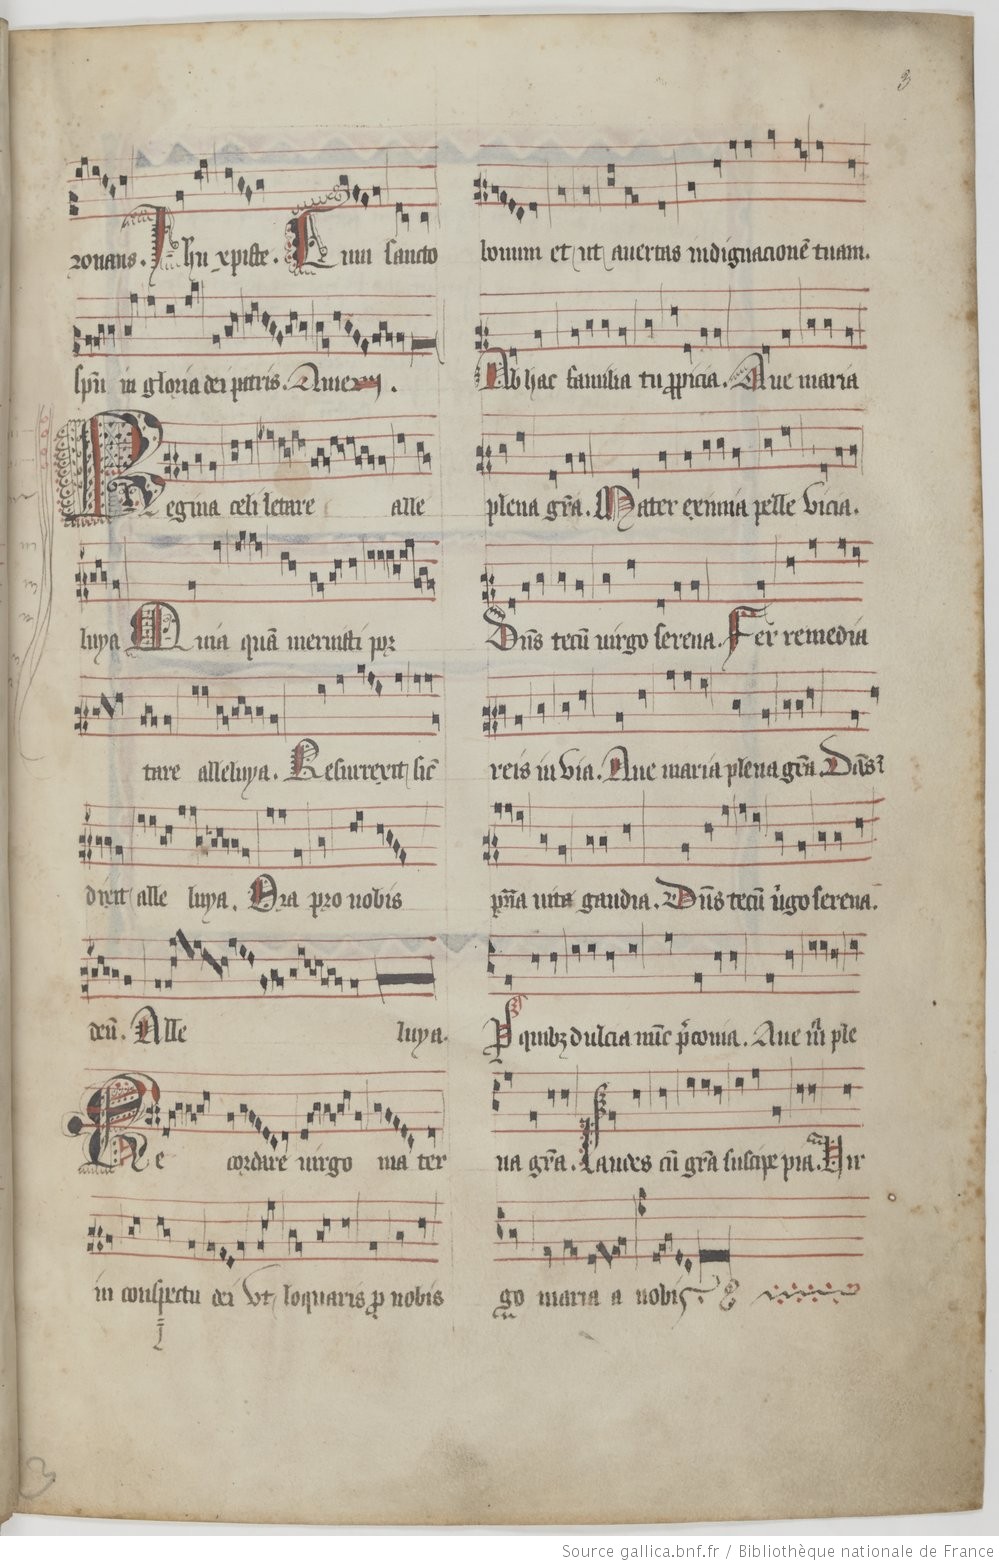 3
ronans. Ihu xpiste. Cum sancto
spu in gloria dei patris. Amen.
Regina celi letare alle
luya Quia quā meruisti por
tare alleluya. Resurrexit sic̄
dixit alle luya. Ora pro nobis
deū. Alle luya.
Re cordare virgo ma ter
in conspectu dei Vt loquaris ꝓ nobis
bonum et ut auertas indignacionē tuam.
Ab hac familia tu ꝓpicia. Aue maria
plena gr̄a. Mater eximia pelle vicia.
Dn̄s tecū uirgo serena. Fer remedia
reis in via. Aue maria plena gr̄a. Dn̄s
uita gaudia. Dn̄s tecū v͛go serena.
P quibꝫ dulcia nūc p̄conia. Aue ple
na gr̄a. Laudes cū gr̄a suscipe pia. Vir
go maria a nobis.
3
Source gallica.bnf.fr / Bibliothèque nationale de France